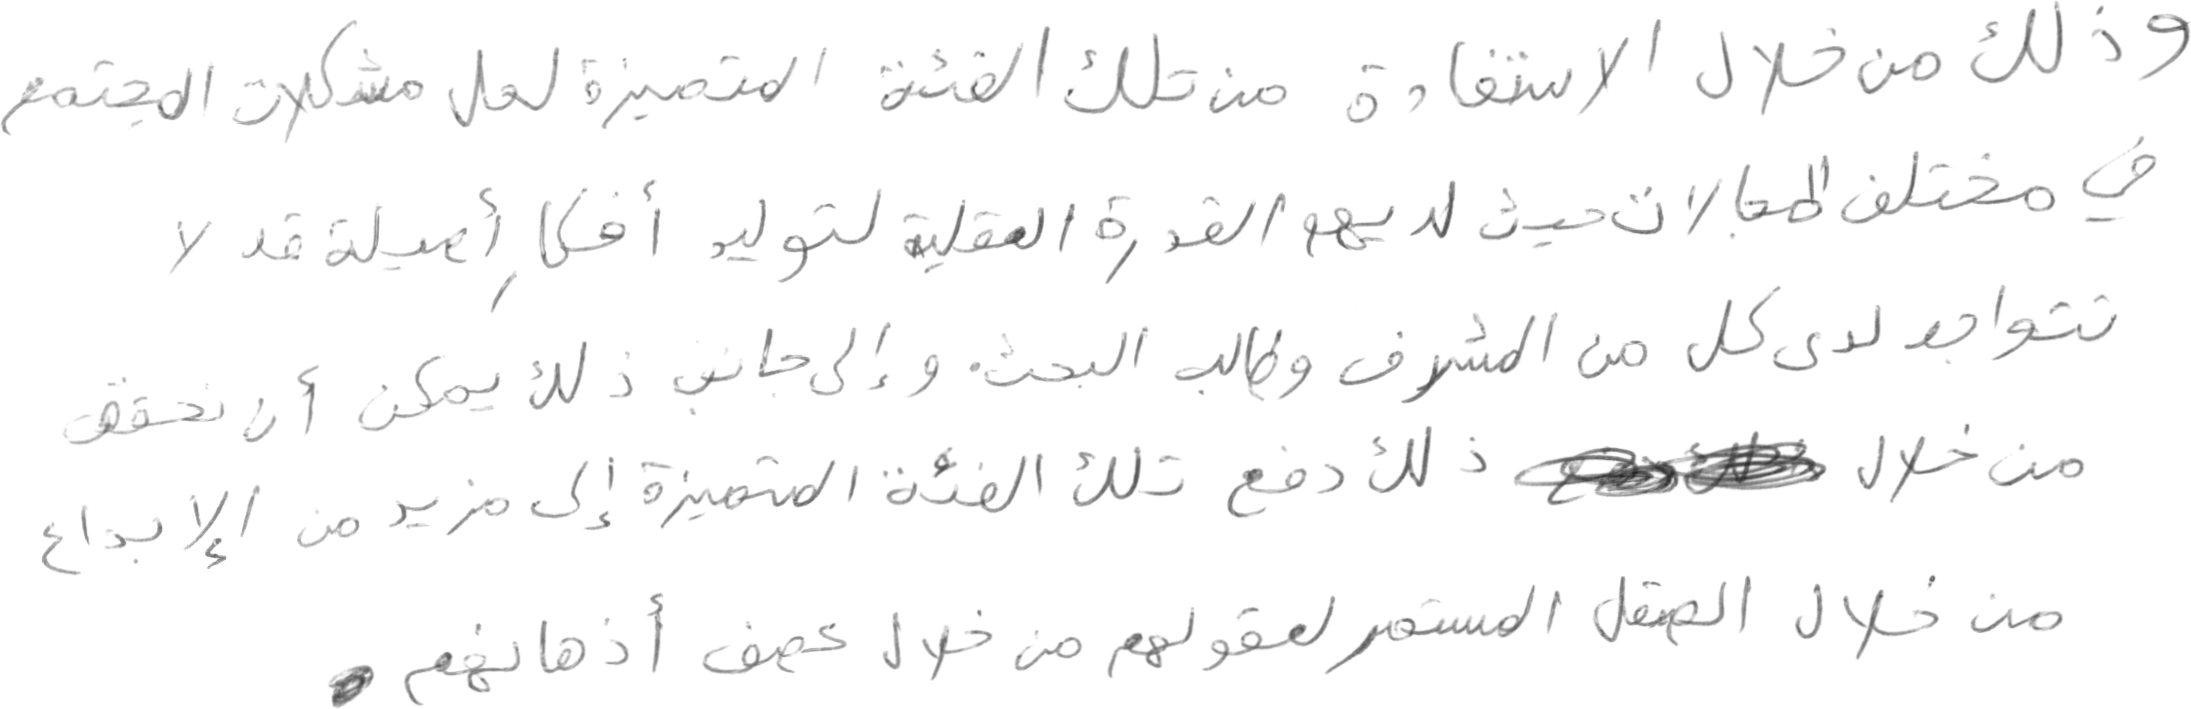 وذلك من خلال الاستفادة من تلك الفئة المتميزة لحل مشكلات المجتمع
في مختلف المجالات حيث لديهم القدرة العقلية لتوليد أفكار أصيلة قد لا
تتواجد لدى كل من المشرف وطالب البحث. وإلى جانب ذلك يمكن أن نحقق
من خلال ذلك دفع تلك الفئة المتميزة إلى مزيد من الإبداع
من خلال الصقل المستمر لعقولهم من خلال عصف أذهانهم.